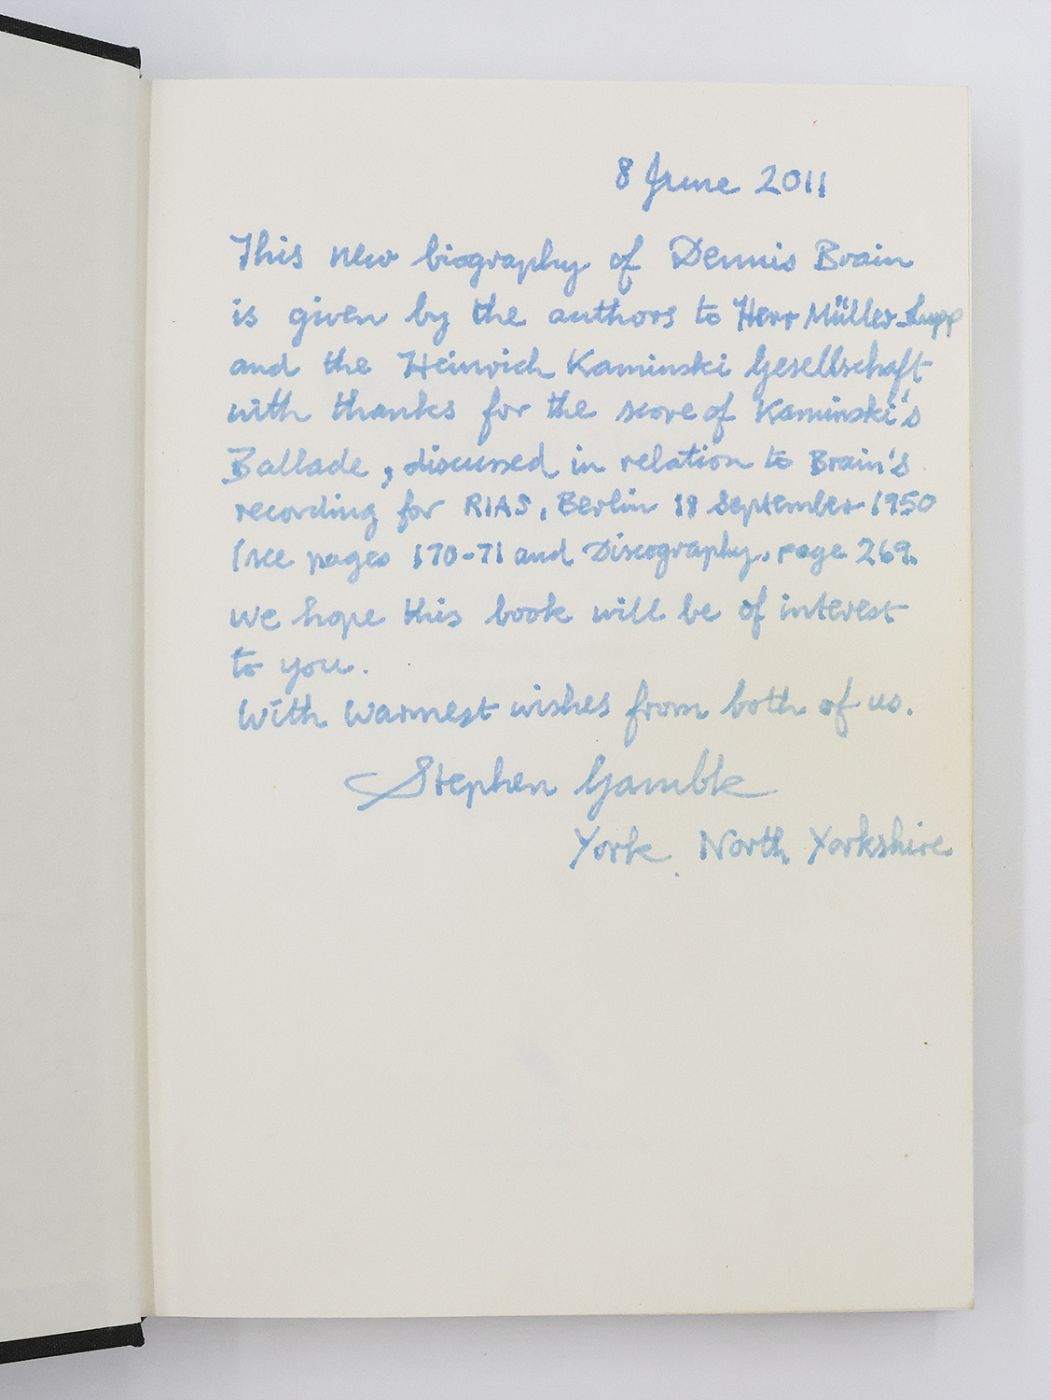 8 June 2011
This new biography of Dennis Brain
is given by the authors to Herr Müller-Lupp
and the Heinrich Kaminski Gesellschaft
with thanks for the score of Kaminski's
Ballade, discussed in relation to Brain's
recording for RIAS, Berlin 18 September 1950
(see pages 170-71 and Discography, page 269.
We hope this book will be of interest
to you.
With warmest wishes from both of us.
Stephen Gamble
York, North Yorkshire